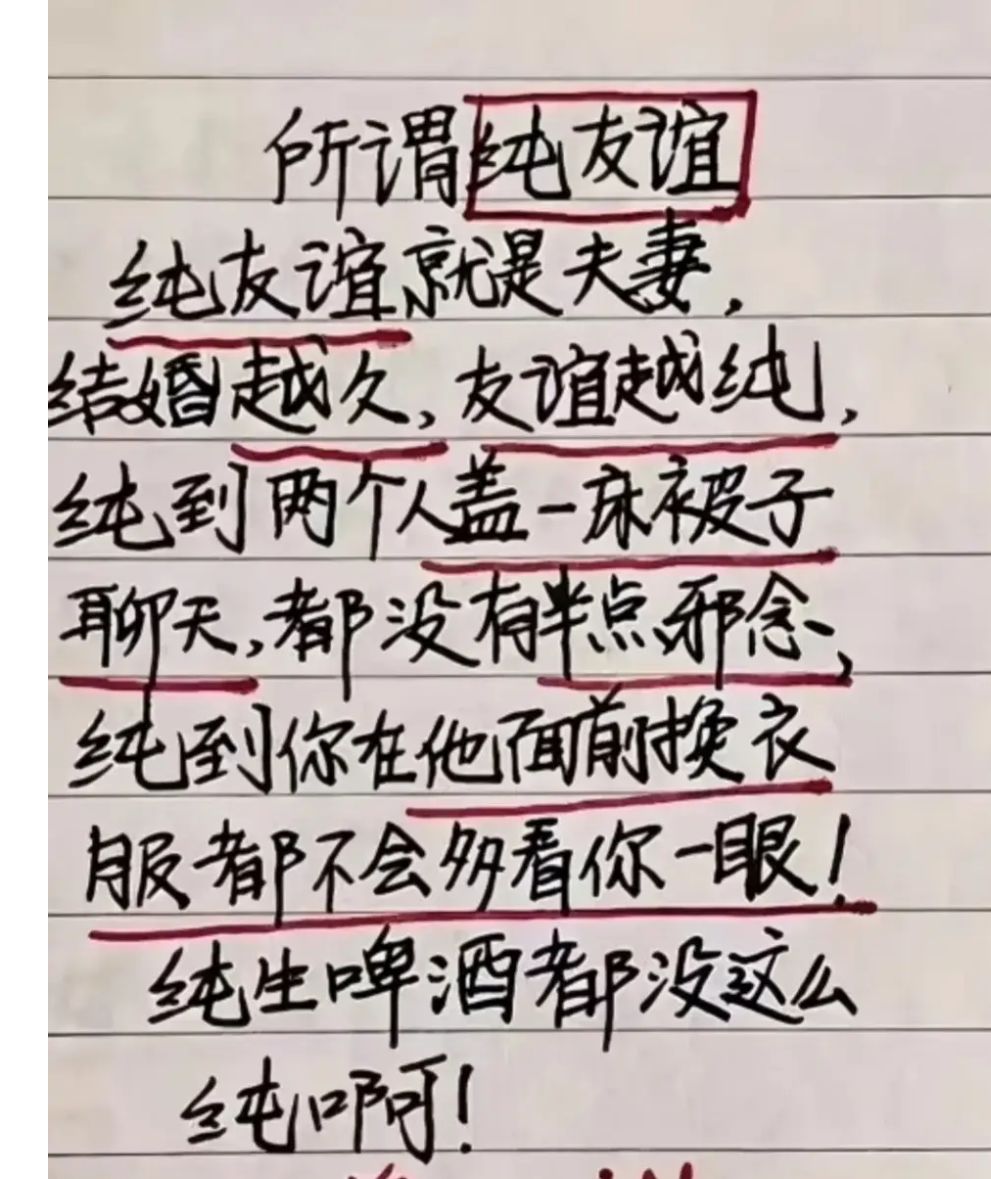 所谓纯友谊
纯友谊就是夫妻，
结婚越久，友谊越纯，
纯到两个人盖一床被子
聊天，都没有半点邪念，
纯到你在他面前换衣
服都不会多看你一眼！
纯生啤酒都没这么
纯啊！